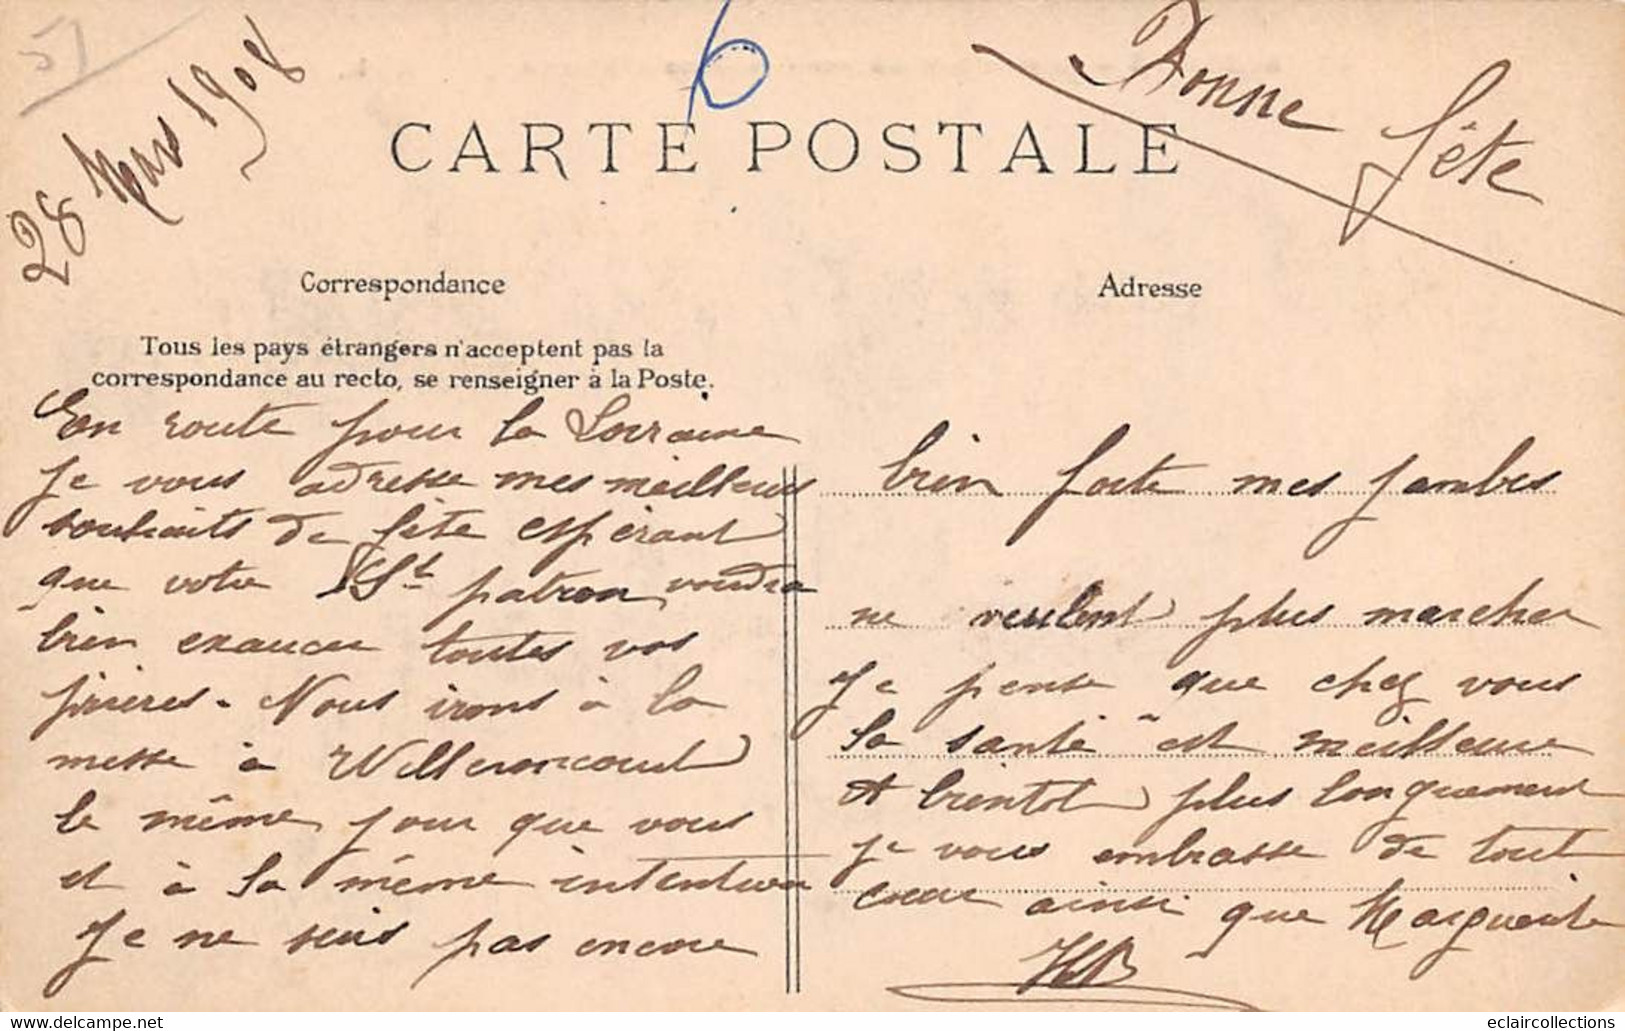 51
28 Mars 1908
6
Bonne
fête
CARTE POSTALE
Correspondance
Adresse
Tous les pays étrangers n'acceptent pas la
correspondance au recto, se renseigner à la Poste.
En route pour la Lorraine
je vous adresse mes meilleurs
souhaits de fête espérant
que votre St patron voudra
bien exaucer toutes vos
prières. Nous irons à la
messe à Willeroncourt
le même jour que vous
et à la même intention
Je ne suis pas encore
bien forte mes jambes
ne veulent plus marcher
Je pense que chez vous
la santé est meilleure
A bientot plus longuement
je vous embrasse de tout
cœur ainsi que Marguerite
HB
eclaircollections